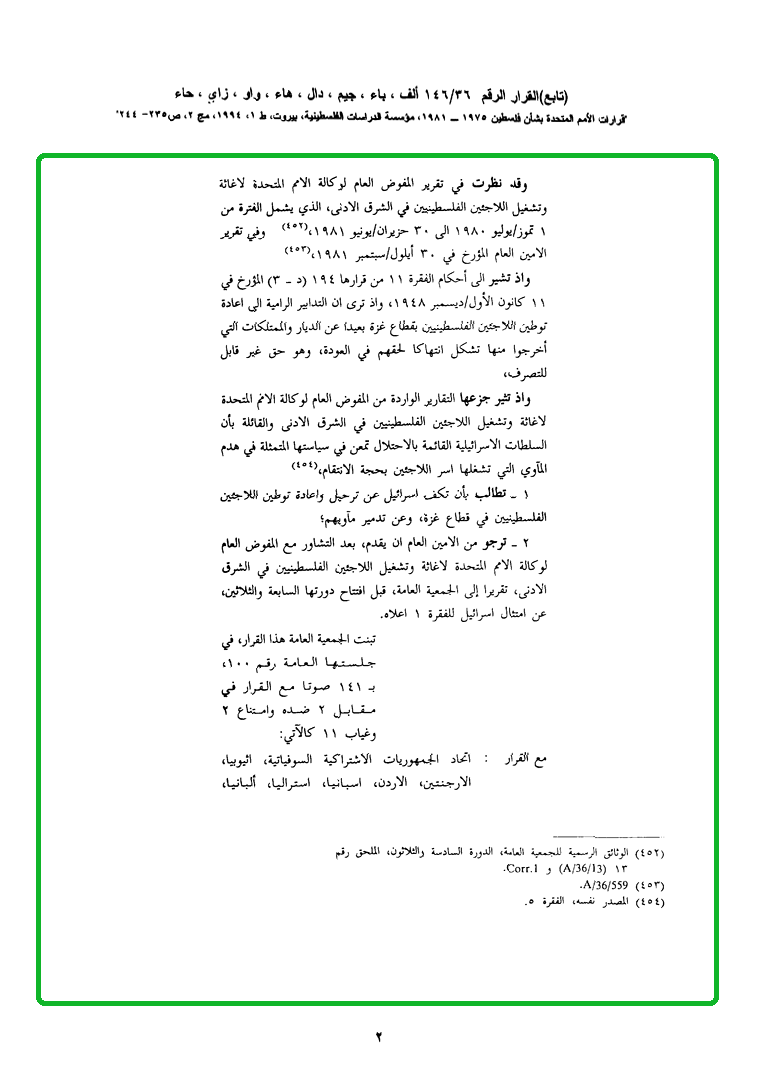 (تابع)القرار الرقم ١٤٦/٣٦ ألف ، باء ، جيم ، دال ، هاء ، واو ، زاي ، حاء
"قرارات الأمم المتحدة بشأن فلسطين ١٩٧٥ – ١٩٨١، مؤسسة الدراسات الفلسطينية، بيروت، ط ١، ١٩٩٤، مج ٢، ص٢٣٥– ٢٤٤"
وقد نظرت في تقرير المفوض العام لوكالة الامم المتحدة لاغاثة
وتشغيل اللاجئين الفلسطينيين في الشرق الادنى، الذي يشمل الفترة من
١ تموز/يوليو ١٩٨٠ الى ٣٠ حزيران/يونيو ١٩٨١،(٤٥٢) وفي تقرير
الامين العام المؤرخ في ٣٠ أيلول/سبتمبر ١٩٨١،(٤٥٣)
واذ تشير الى أحكام الفقرة ١١ من قرارها ١٩٤ (د – ٣) المؤرخ في
١١ كانون الأول/ديسمبر ١٩٤٨، واذ ترى ان التدابير الرامية الى اعادة
توطين اللاجئين الفلسطينيين بقطاع غزة بعيدا عن الديار والممتلكات التي
أخرجوا منها تشكل انتهاكا لحقهم في العودة، وهو حق غير قابل
للتصرف،
واذ تثير جزعها التقارير الواردة من المفوض العام لوكالة الامم المتحدة
لاغاثة وتشغيل اللاجئين الفلسطينيين في الشرق الادنى والقائلة بأن
السلطات الاسرائيلية القائمة بالاحتلال تمعن في سياستها المتمثلة في هدم
المآوي التي تشغلها اسر اللاجئين بحجة الانتقام،(٤٥٤)
١ – تطالب بأن تكف اسرائيل عن ترحيل واعادة توطين اللاجئين
الفلسطينيين في قطاع غزة، وعن تدمير مآويهم؛
٢ – ترجو من الامين العام ان يقدم، بعد التشاور مع المفوض العام
لوكالة الامم المتحدة لاغاثة وتشغيل اللاجئين الفلسطينيين في الشرق
الادنى، تقريرا إلى الجمعية العامة، قبل افتتاح دورتها السابعة والثلاثين،
عن امتثال اسرائيل للفقرة ١ اعلاه.
تبنت الجمعية العامة هذا القرار، في
جلستها العامة رقم ١٠٠،
بـ ١٤١ صوتا مع القرار في
مقابل ٢ ضده وامتناع ٢
وغياب ١١ كالآتي:
مع القرار : اتحاد الجمهوريات الاشتراكية السوفياتية، اثيوبيا،
الارجنتين، الاردن، اسبانيا، استراليا، ألبانيا،
(٤٥٢) الوثائق الرسمية للجمعية العامة، الدورة السادسة والثلاثون، الملحق رقم
١٣ (A/36/13) و Corr.1.
(٤٥٣) A/36/559.
(٤٥٤) المصدر نفسه، الفقرة ٥.
٢